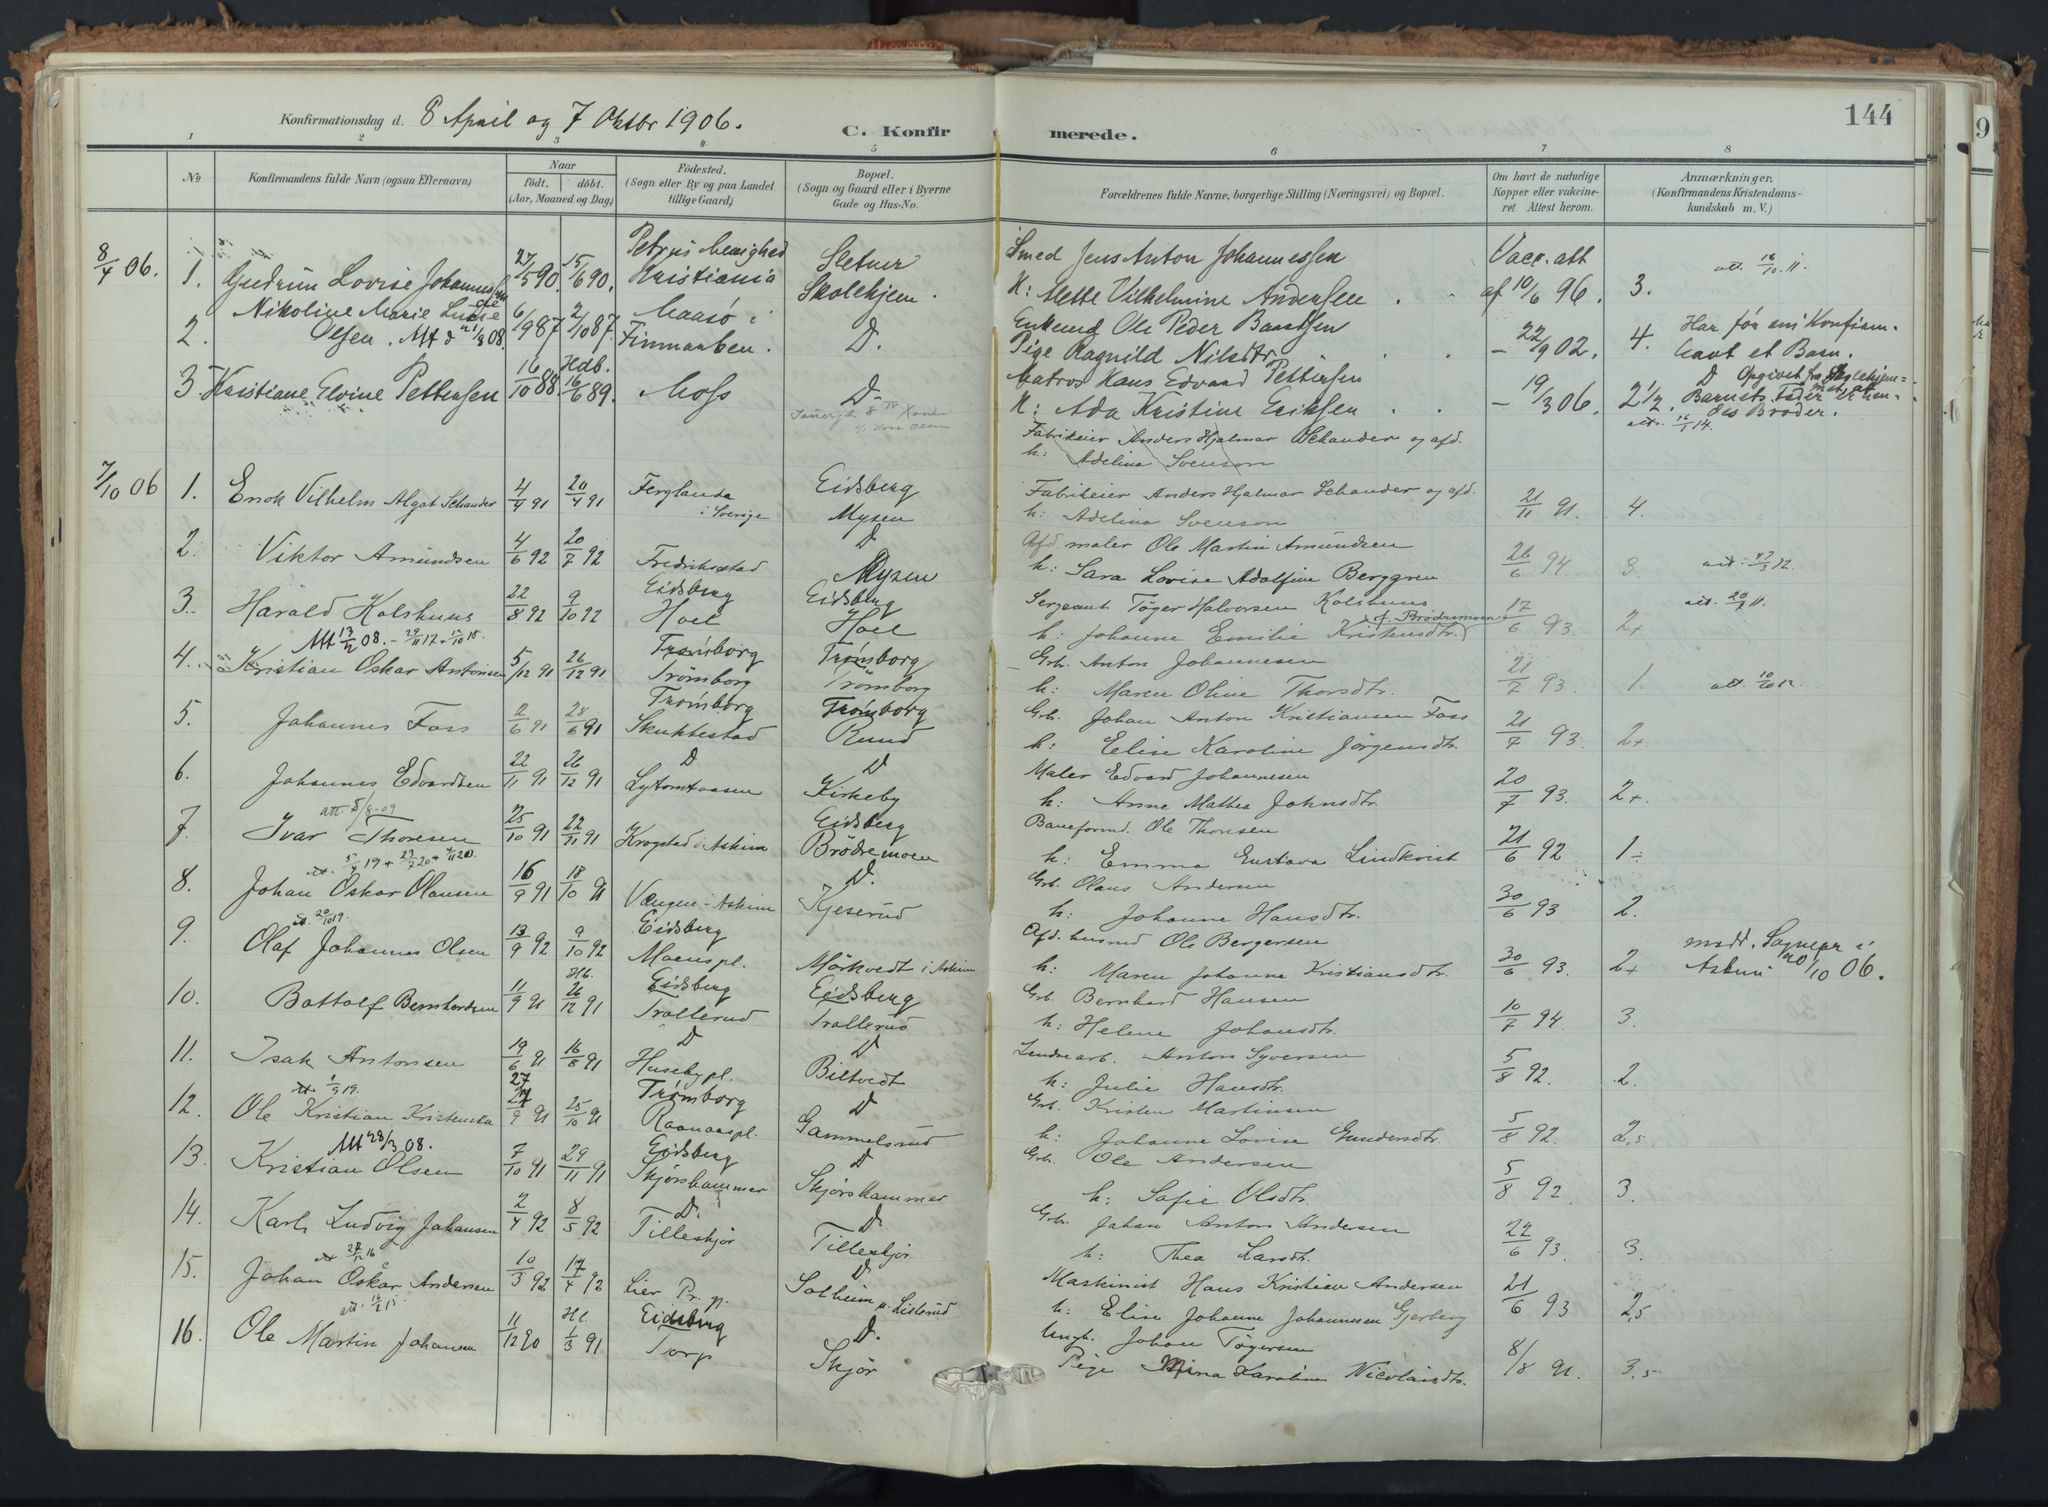 144
Konfirmationsdag d. 8 April og 7 Oktbr 1906.
C. Konfirmerede.
1 2 3 4 5 6 7 8
No
Konfirmandens fulde Navn (ogsaa Efternavn)
Naar
födt. döbt.
(Aar, Maaned og Dag)
Födested.
(Sogn eller By og paa Landet
tillige Gaard)
Bopæl.
(Sogn og Gaard eller i Byerne
Gade og Hus-No.
Forældrenes fulde Navne, borgerlige Stilling (Næringsvei) og Bopæl.
Om havt de naturlige
Kopper eller vakcine-
ret. Attest herom.
Anmærkninger.
(Konfirmandens Kristendoms-
kundskab m. V.)
8/4 06. 1. Gudrun Lovise Johannessen 27/5 90. 15/6 90. Petrus Menighed Kristiania Sletner Skolehjem.
Smed Jens Anton Johannessen
H: Mette Vilhelmine Andersen
Vacc. att af 10/6 96. 3. att. 16/10 11.
2. Nikoline Marie Olsen. Att d 21/3 08. 6/9 87 2/10 87. Maasö i Finmarken. D.
Enkemd Ole Peder
Pige Ragnild Nilsdtr.
– 22/9 02. 4. Har før sin Konfirm. havt et Barn.
3. Kristiane Elvine Pettersen 16/10 88. Hdb. 16/6 89. Moss D.
Matros Hans Edvard Pettersen
H: Ada Kristine Eriksen
– 19/3 06. 2 1/2. D Opgivet fra Skolehjemmet, at Barnets Fader er hendes Broder.
Fabrikeier Anders Hjalmar Schander og afd.
h: Adelina Svenson
7/10 06 1. Enok Vilhelm Algot Schander 4/4 91 20/4 91 Ferglanda i Sverige Eidsberg Mysen
Fabrikeier Anders Hjalmar Schander og afd.
h: Adelina Svenson
21/11 91. 4.
2. Viktor Amundsen 4/6 92 20/7 92 Fredriksstad D Mysen
Afd. maler Ole Martin Amundsen
h: Sara Lovise Adolfine Berggren
26/6 94 3.
3. Harald Kolshuus 22/8 92 9/10 92 Eidsberg Hoel Eidsberg Hoel
Sergeant Töger Halvorsen Kolshuus
h: Johanne Emilie Kristensdtr. f. Brödremoen
17/6 93 2+ att. 20/9 11.
Att 13/2 08. – 29/11 17 + 12/10 18.
4. Kristian Oskar Antonsen 5/12 91 26/12 91 Trömborg Trömborg Trömborg Trömborg
Grb. Anton Johannesen
h: Maren Oline Thorsdtr.
21/7 93. 1. att. 10/10 12.
5. Johannes Foss 2/6 91 28/6 91 Trömborg Skuktestad Trömborg Ruud
Grb. Johan Anton Kristiansen Foss
h: Elise Karoline Jörgensdtr.
21/7 93. 2+
6. Johannes Edvardsen 22/11 91 26/12 91 D D Kirkeby
Maler Edvard Johannesen
h: Anne Mathea Johnsdtr.
20/7 93. 2+.
7. Ivar Thoresen att. 5/8-09 25/10 91 22/11 91 Krogstad i Askim Eidsberg Brödremoen
Baneformd. Ole Thoresen
h: Emma Gustava Lindkvist
21/6 92 1÷
8. Johan Oskar Olausen 16/9 91 18/10 91 Vængen – Askim D. Kjeserud
Grb. Olaus Andersen
h: Johanne Hansdtr.
30/6 93 2.
9. Olaf Johannes Olsen att. 20/10 19. 13/9 92 9/10 92 Eidsberg Moenspl. Mörkvedt i Askim
Afd. husmd Ole Bergersen
h: Maren Johanne Kristiansdtr.
30/6 93. 2+ medd. Sognepr i Askim 20/10 06.
10. Bottolf Bernhardsen 11/9 91 Hb. 26/12 91 Eidsberg Trollerud Eidsberg Trollerud
Grb. Bernhard Hansen
h: Helene Johansdtr.
10/7 94. 3.
11. Isak Antonsen 19/6 91 16/8 91 D Husebypl. D Biltvedt
Anton Syversen
h: Julie Hansdtr.
5/8 92. 2.
12. Ole Kristian Kristensen att. 1/9 19. 27/9 91 25/10 91 Trömborg Raanaaspl. D Gammelsrud
Grb. Kristen Martinsen
h: Johanne Lovise Gundersdtr.
5/8 92. 2,5.
13. Kristian Olsen Att 28/3 08. 7/10 91 29/11 91 Eidsberg Skjörshammer D Skjörshammer
Grb. Ole Andersen
h: Sofie Olsdtr.
5/8 92. 3.
14. Karl Ludvig Johansen 2/4 92 8/5 92 D. Tilleskjör D. Tilleskjör
Grb. Johan Anton Andersen
h: Thea Larsdtr.
22/6 93. 3.
15. Johan Oskar Andersen 10/3 92 17/4 92 Lier Pr. gj. D Solheim u. Listerud
Maskinist Hans Kristian Andersen
h: Elise Johanne Johannesen Gjerberg
21/6 93 2,5
16. Ole Martin Johansen 11/12 90 Hb. 1/3 91 Eidsberg Torp D. Skjör
Ungk. Johan Tögersen
Pige Mina Karoline Nicolaisdtr.
8/8 91. 3,5